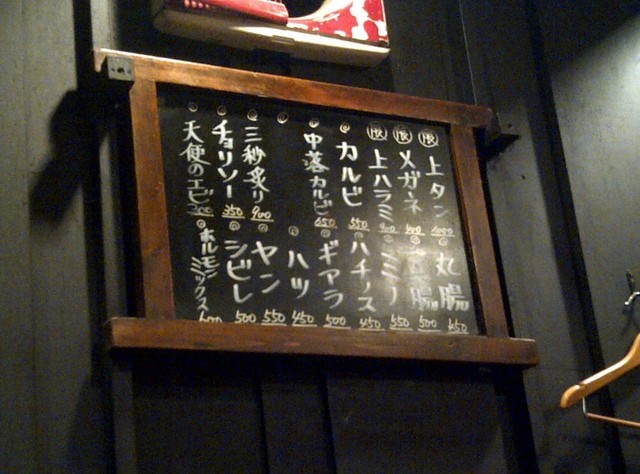 限 上タン
限 メガネ
限 上ハラミ 900
カルビ 550
中落カルビ 650
三秒炙り 900
チョリソー 350
天使のエビ 300
丸腸 650
腸 500
ミノ 550
ハチノス 450
ギアラ 500
ハツ 450
ヤン 550
シビレ 500
ホルモンミックス